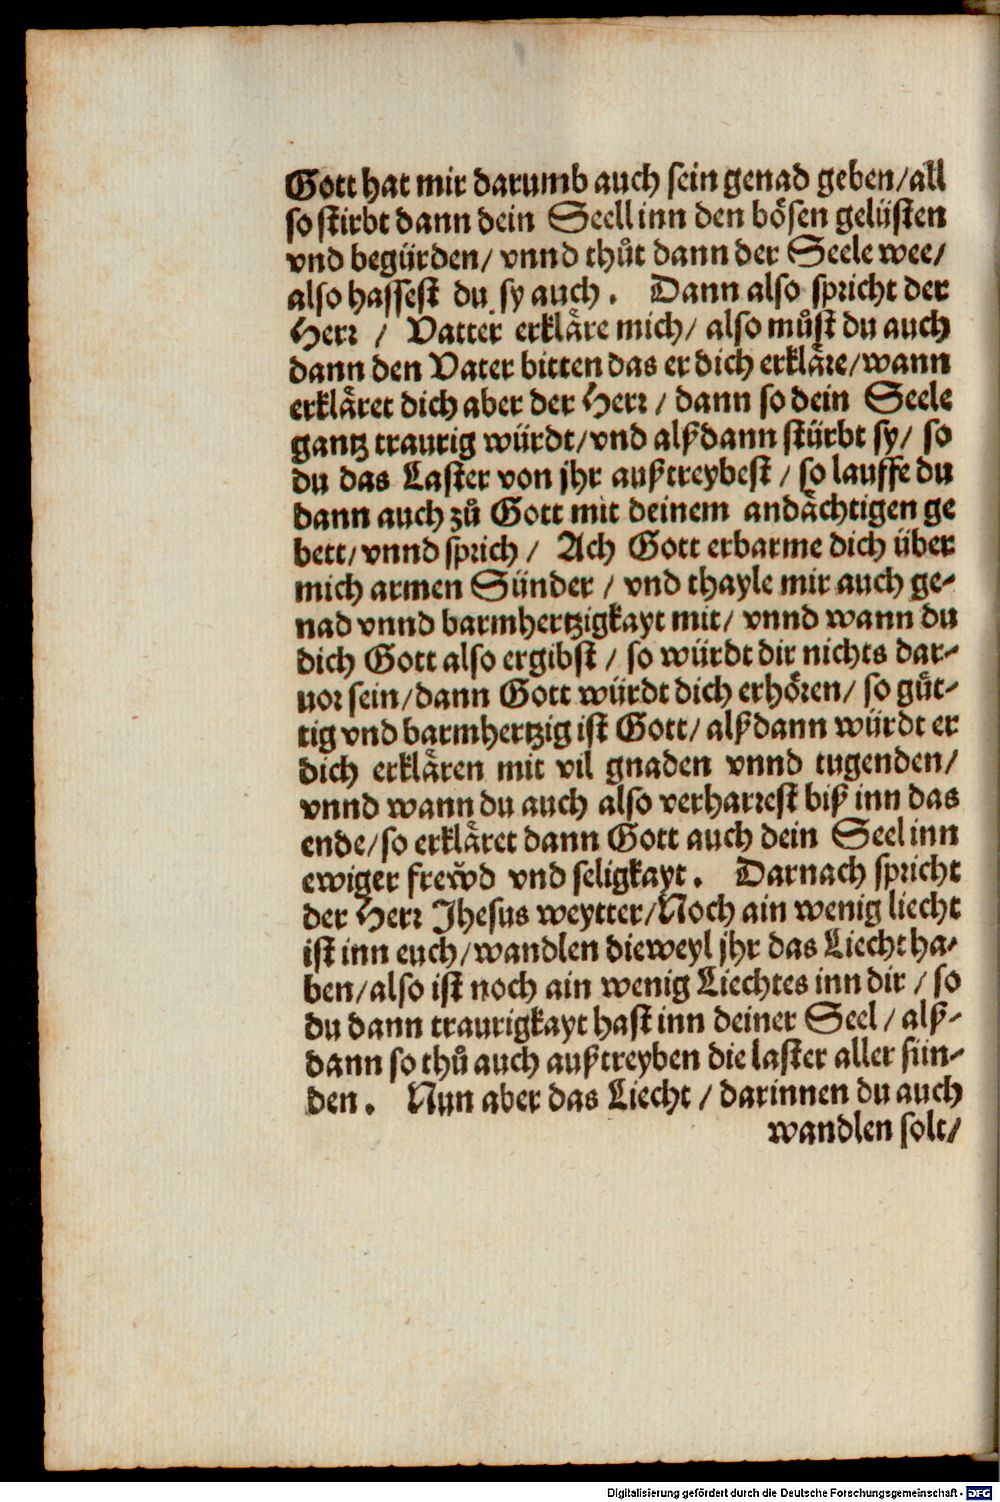 Gott hat mir darumb auch sein genad geben/all
so stirbt dann dein Seell inn den bösen gelüsten
vnd begürden/ vnnd thůt dann der Seele wee/
also hassest du sy auch. Dann also spricht der
Herr / Vatter erkläre mich/ also můst du auch
dann den Vater bitten das er dich erkläre/wann
erkläret dich aber der Herr / dann so dein Seele
gantz traurig würdt/vnd alßdann stürbt sy/ so
du das Laster von jhr außtreybest / so lauffe du
dann auch zů Gott mit deinem andächtigen ge
bett/ vnnd sprich / Ach Gott erbarme dich über
mich armen Sünder / vnd thayle mir auch ge-
nad vnnd barmhertzigkayt mit/ vnnd wann du
dich Gott also ergibst / so würdt dir nichts dar-
uor sein/dann Gott würdt dich erhören/ so güt-
tig vnd barmhertzig ist Gott/ alßdann würdt er
dich erklären mit vil gnaden vnnd tugenden/
vnnd wann du auch also verharrest biß inn das
ende/so erkläret dann Gott auch dein Seel inn
ewiger frewͤd vnd seligkayt. Darnach spricht
der Herr Jhesus weytter/Noch ain wenig liecht
ist inn euch/wandlen dieweyl jhr das Liecht ha-
ben/also ist noch ain wenig Liechtes inn dir / so
du dann traurigkayt hast inn deiner Seel / alß-
dann so thů auch außtreyben die laster aller sün-
den. Nun aber das Liecht / darinnen du auch
wandlen solt/
Digitalisierung gefördert durch die Deutsche Forschungsgemeinschaft - DFG